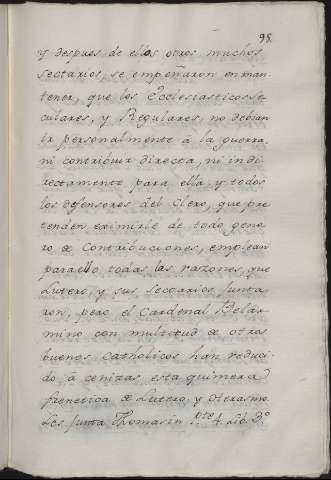 98.
y despues de ellos otros muchos
sectarios, se empeñaron en man
tener, que los Ecclesiasticos Se
culares, y Regulares, no debian
ir personalmente à la guerra,
ni contribuir directa, ni indi
rectamente para ella, y todos
los defensores del Clero, que pre
tenden eximirle de todo gene
ro de Contribuciones, emplean
para ello todas las razones, que
Lutero, y sus Sectarios junta
ron, pero el Cardenal Belar
mino con multitud de otros
buenos catholicos han reduci
do à cenizas esta quimera
frenetica de Lutero, y
junta Thomasin P.te 4. Lib. 3.º